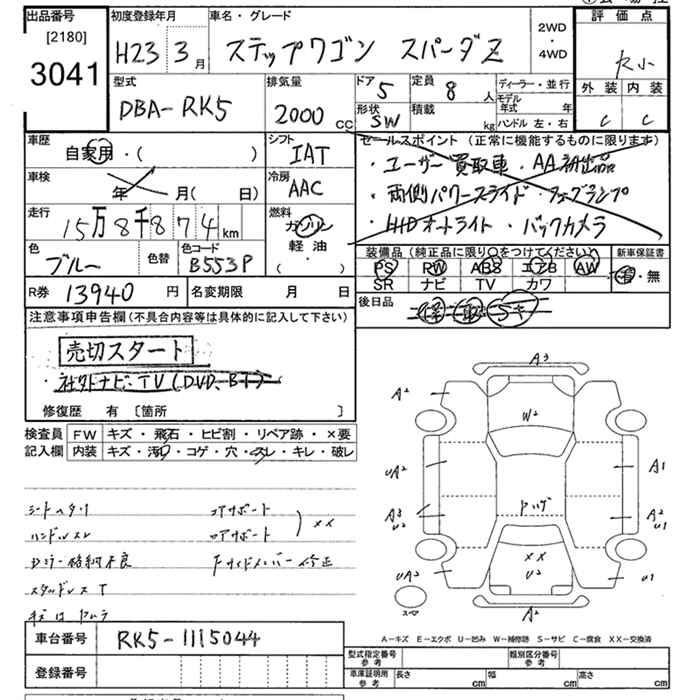 出品番号
[2180]
3041
初度登録年月
H23 3月
車名・グレード
ステップワゴン スパーダZ
2WD
・
4WD
評価点
大小
外装 内装
C C
型式
DBA-RK5
排気量
2000 CC
ドア 5
定員 8 人
形状 SW
積載 kg
ディーラー・並行
モデル年式 年
ハンドル 左・右
車歴
自家用・( )
車検
年 月( 日)
走行
15万8千874 km
色
ブルー
色替
色コード
B553P
シフト
IAT
冷房
AAC
燃料
ガソリン
軽油
( )
セールスポイント (正常に機能するものに限ります)
・ユーザー買取車・AA初出品
・両側パワースライド・フォグランプ
・HIDオートライト・バックカメラ
装備品(純正品に限り○をつけてください)
PS RW ABS エアB AW
SR ナビ TV カワ
新車保証書
有・無
R券 13940 円
名変期限 月 日
後日品
注意事項申告欄(不具合内容等は具体的に記入して下さい)
売切スタート
・社外ナビ、TV(DVD、BT)
修復歴 有 〔箇所 〕
検査員記入欄
FW キズ・飛石・ヒビ割・リペア跡・×要
内装 キズ・汚れ・コゲ・穴・スレ・キレ・破レ
シートヘタリ
ハンドルスレ
ドラー格納不良
スタッドレス T
コアサポート
ロアサポート
××
Fサイドメンバー修正
A3
A2
W2
UA2
A1
A3
U2
ドハゲ
A2
U1
××
U2
UA2
U1
A2
スペア
A-キズ E-エクボ U-凹み W-補修跡 S-サビ C-腐食 XX-交換済
車台番号
RK5-1115044
登録番号
型式指定番号
参考
類別区分番号
参考
車庫証明用
参考
長さ cm 幅 cm 高さ cm